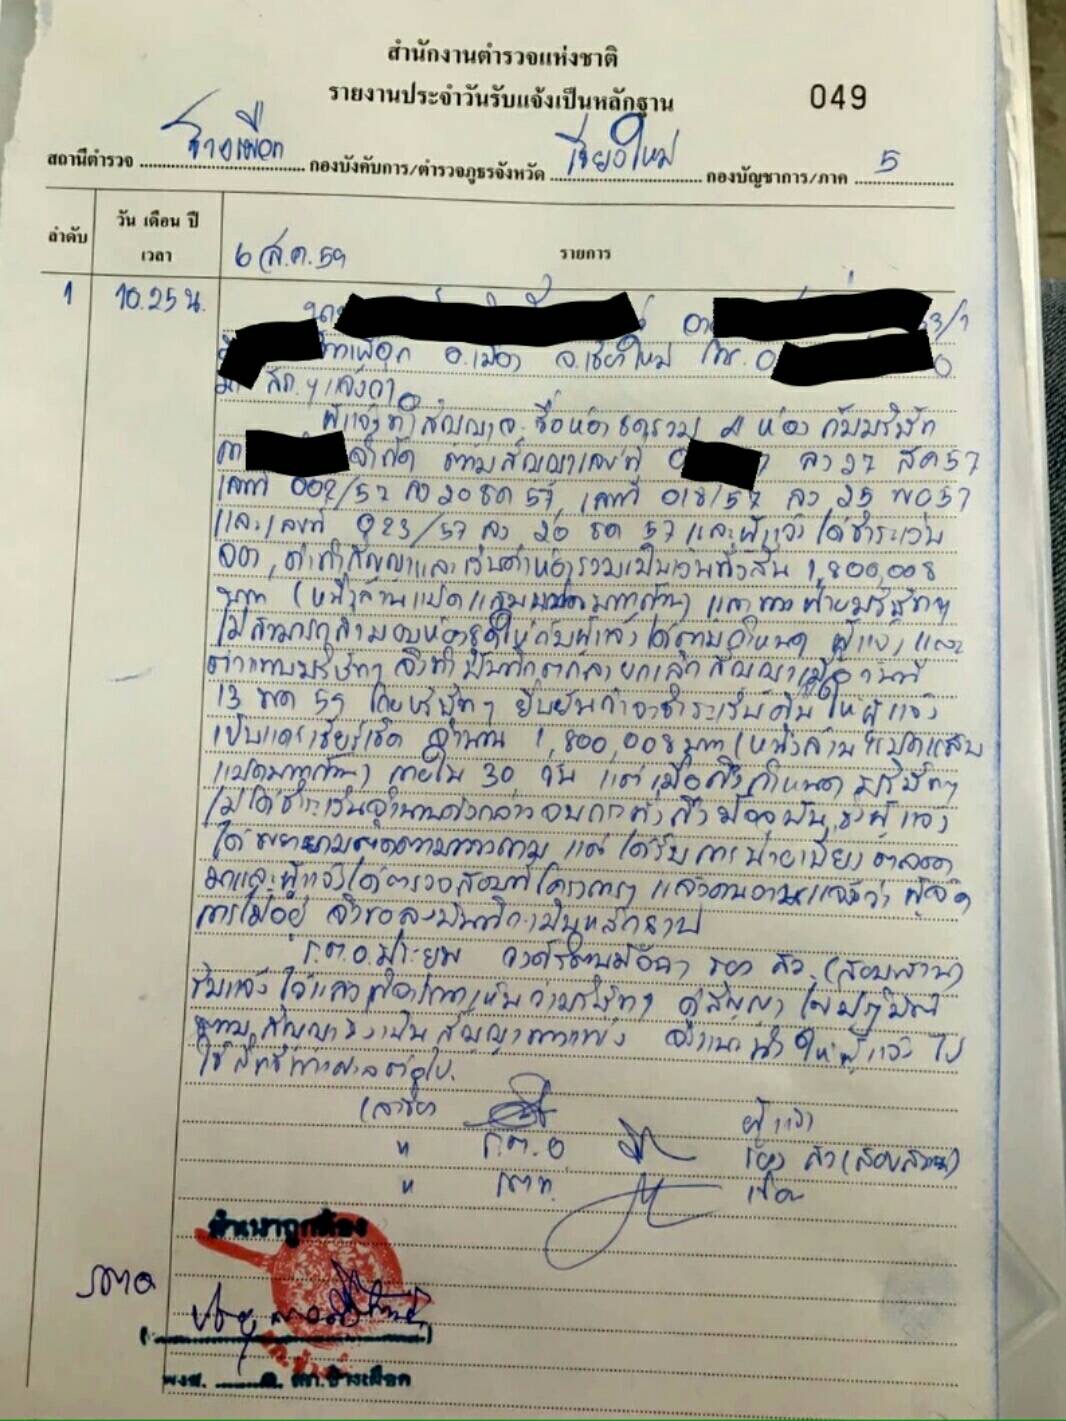 สำนักงานตำรวจแห่งชาติ
รายงานประจำวันรับแจ้งเป็นหลักฐาน 049
สถานีตำรวจ ช้างเผือก กองบังคับการ/ตำรวจภูธรจังหวัด เชียงใหม่ กองบัญชาการ/ภาค 5
ลำดับ วัน เดือน ปี เวลา 6 ส.ค. 59 รายการ
1 10.25 น. นาย
ช้างเผือก อ.เมือง จ.เชียงใหม่ โทร. 0
มา สภ.ฯ แจ้งว่า
ผู้แจ้งทำสัญญาจะซื้อห้องชุดรวม 4 ห้อง กับบริษัท
จำกัด ตามสัญญาเลขที่ ลว 27 สค 57
เลขที่ 007/57 ลว 20 ธค 57, เลขที่ 018/57 ลว 25 พย 57
และเลขที่ 023/57 ลว 20 ธค 57 และผู้แจ้งได้ชำระเงิน
จอง, ค่าทำสัญญาและเงินค่าห้องรวมเป็นเงินทั้งสิ้น 1,800,008
บาท (หนึ่งล้านแปดแสนแปดบาทถ้วน) และทางฝ่ายบริษัทฯ
ไม่สามารถส่งมอบห้องชุดให้กับผู้แจ้งได้ตามกำหนด ผู้แจ้งและ
ตัวแทนบริษัทฯ จึงทำบันทึกตกลงยกเลิกสัญญาเมื่อวันที่
13 โดยบริษัทฯ ยืนยันว่าจะชำระเงินคืนให้ผู้แจ้ง
เป็นแคชเชียร์เช็ค จำนวน 1,800,008 บาท (หนึ่งล้านแปดแสน
แปดบาทถ้วน) ภายใน 30 วัน แต่เมื่อถึงกำหนด บริษัทฯ
ไม่ได้ชำระเงินจำนวนดังกล่าวจนกระทั่งถึงปัจจุบัน ซึ่งผู้แจ้ง
ได้พยายามติดตามทวงถาม แต่ได้รับการบ่ายเบี่ยงตลอด
มาและผู้แจ้งได้ตรวจสอบที่โครงการฯ แล้ว ว่าผู้จัด
การไม่อยู่ จึงขอลงบันทึกเป็นหลักฐาน
ร.ต.อ. รอง สว.(สอบสวน)
รับแจ้งไว้แล้วพิจารณาเห็นว่าบริษัทฯ คู่สัญญา ไม่ปฏิบัติ
ตามสัญญาซึ่งเป็นสัญญาทางแพ่ง จึงแนะนำให้ผู้แจ้งไป
ใช้สิทธิทางศาลต่อไป.
(ลงชื่อ ผู้แจ้ง
" ร.ต.อ. รอง สว(สอบสวน)
"
สำเนาถูกต้อง
พงส. สภ.ช้างเผือก